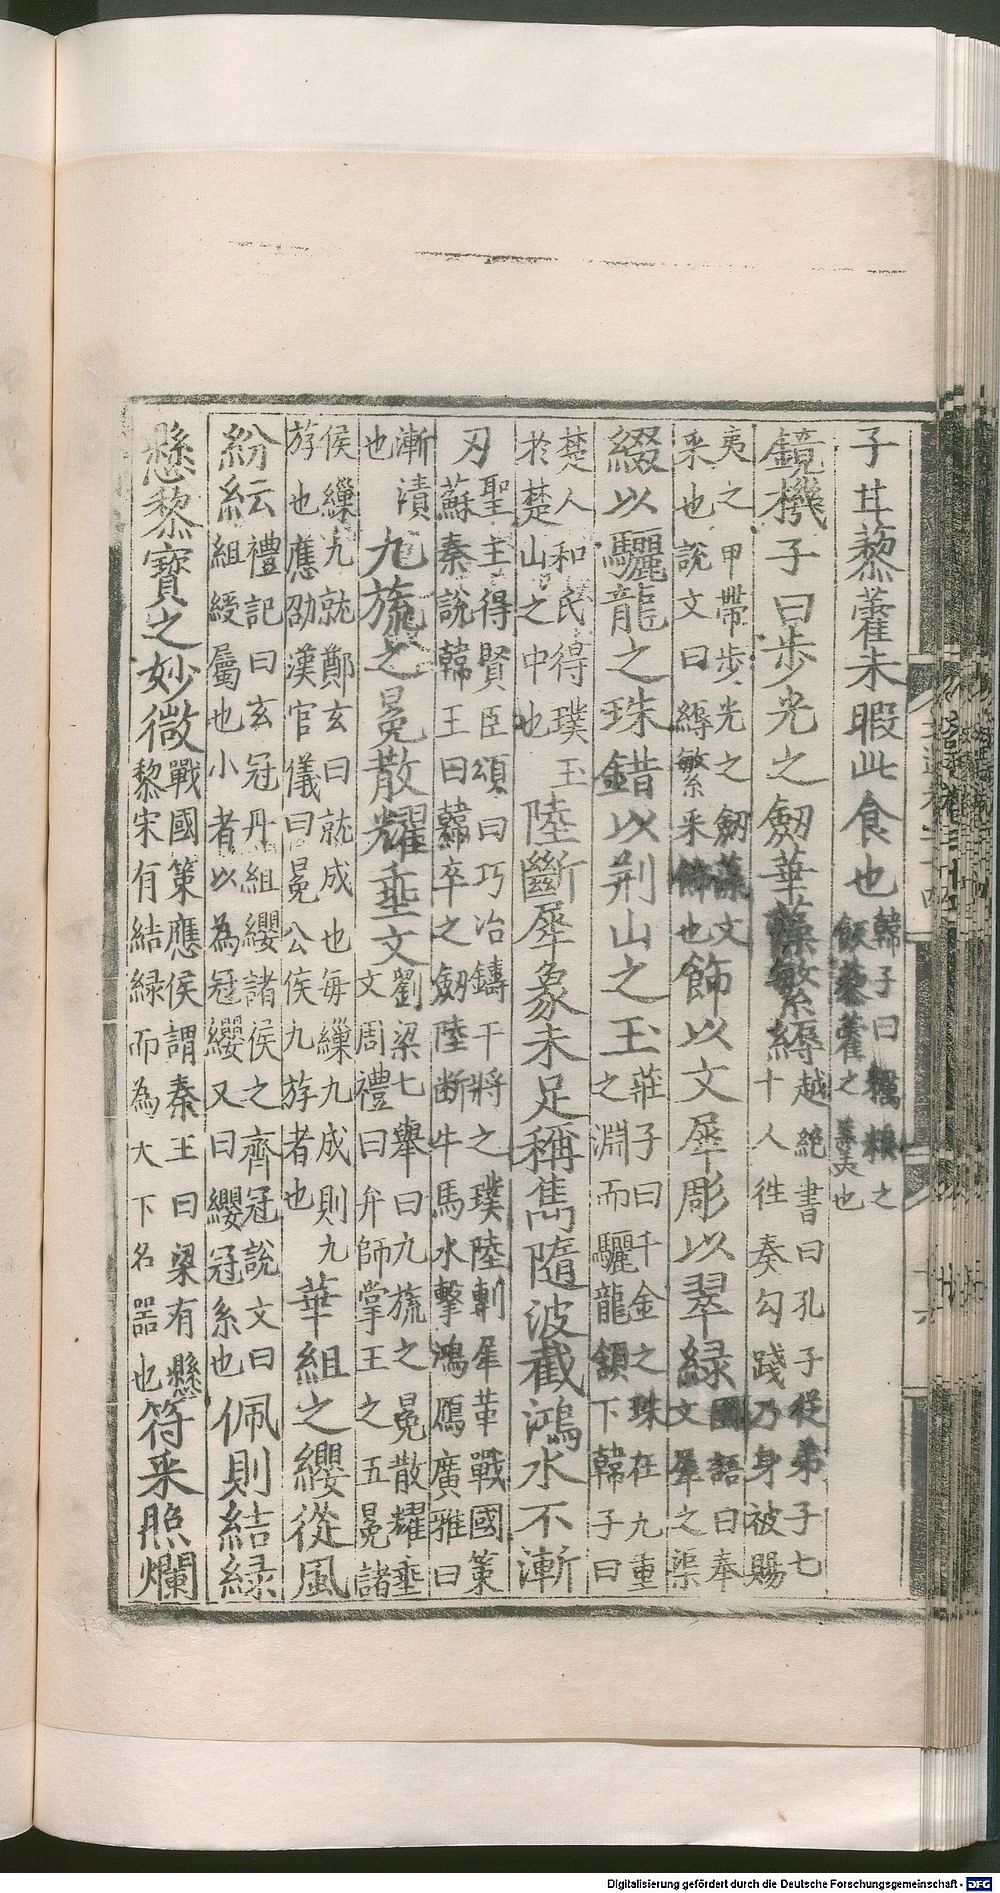 子甘藜藿未暇此食也韓子曰糲粮之
飯藜藿之羹也
鏡機子曰步光之劒華藻繁縟越絕書曰孔子從弟子七
十人往奏勾踐乃身被賜
夷之甲帶步光之劒藻文
采也說文曰縟繁采飾也飾以文犀彫以翠綠國語曰奉
文犀之渠
綴以驪龍之珠錯以荆山之玉莊子曰千金之珠在九重
之淵而驪龍頷下韓子曰
楚人和氏得璞玉
於楚山之中也陸斷犀象未足稱雋隨波截鴻水不漸
刃聖主得賢臣頌曰巧冶鑄干將之璞陸剸犀革戰國策
蘇秦說韓王曰韓卒之劒陸断牛馬水擊鴻鴈廣雅曰
漸漬
也九旒之冕散燿垂文劉梁七舉曰九旒之冕散燿垂
文周禮曰弁師掌王之五冕諸
侯繅九就鄭玄曰就成也每繅九成則九
斿也應劭漢官儀曰冕公侯九斿者也華組之纓從風
紛紜禮記曰玄冠丹組纓諸侯之齊冠說文曰
組綬屬也小者以為冠纓又曰纓冠系也佩則結緑
懸黎寳之妙微戰國策應侯謂秦王曰梁有懸
黎宋有結緑而為大下名器也符采照爛
Digitalisierung gefördert durch die Deutsche Forschungsgemeinschaft - DFG